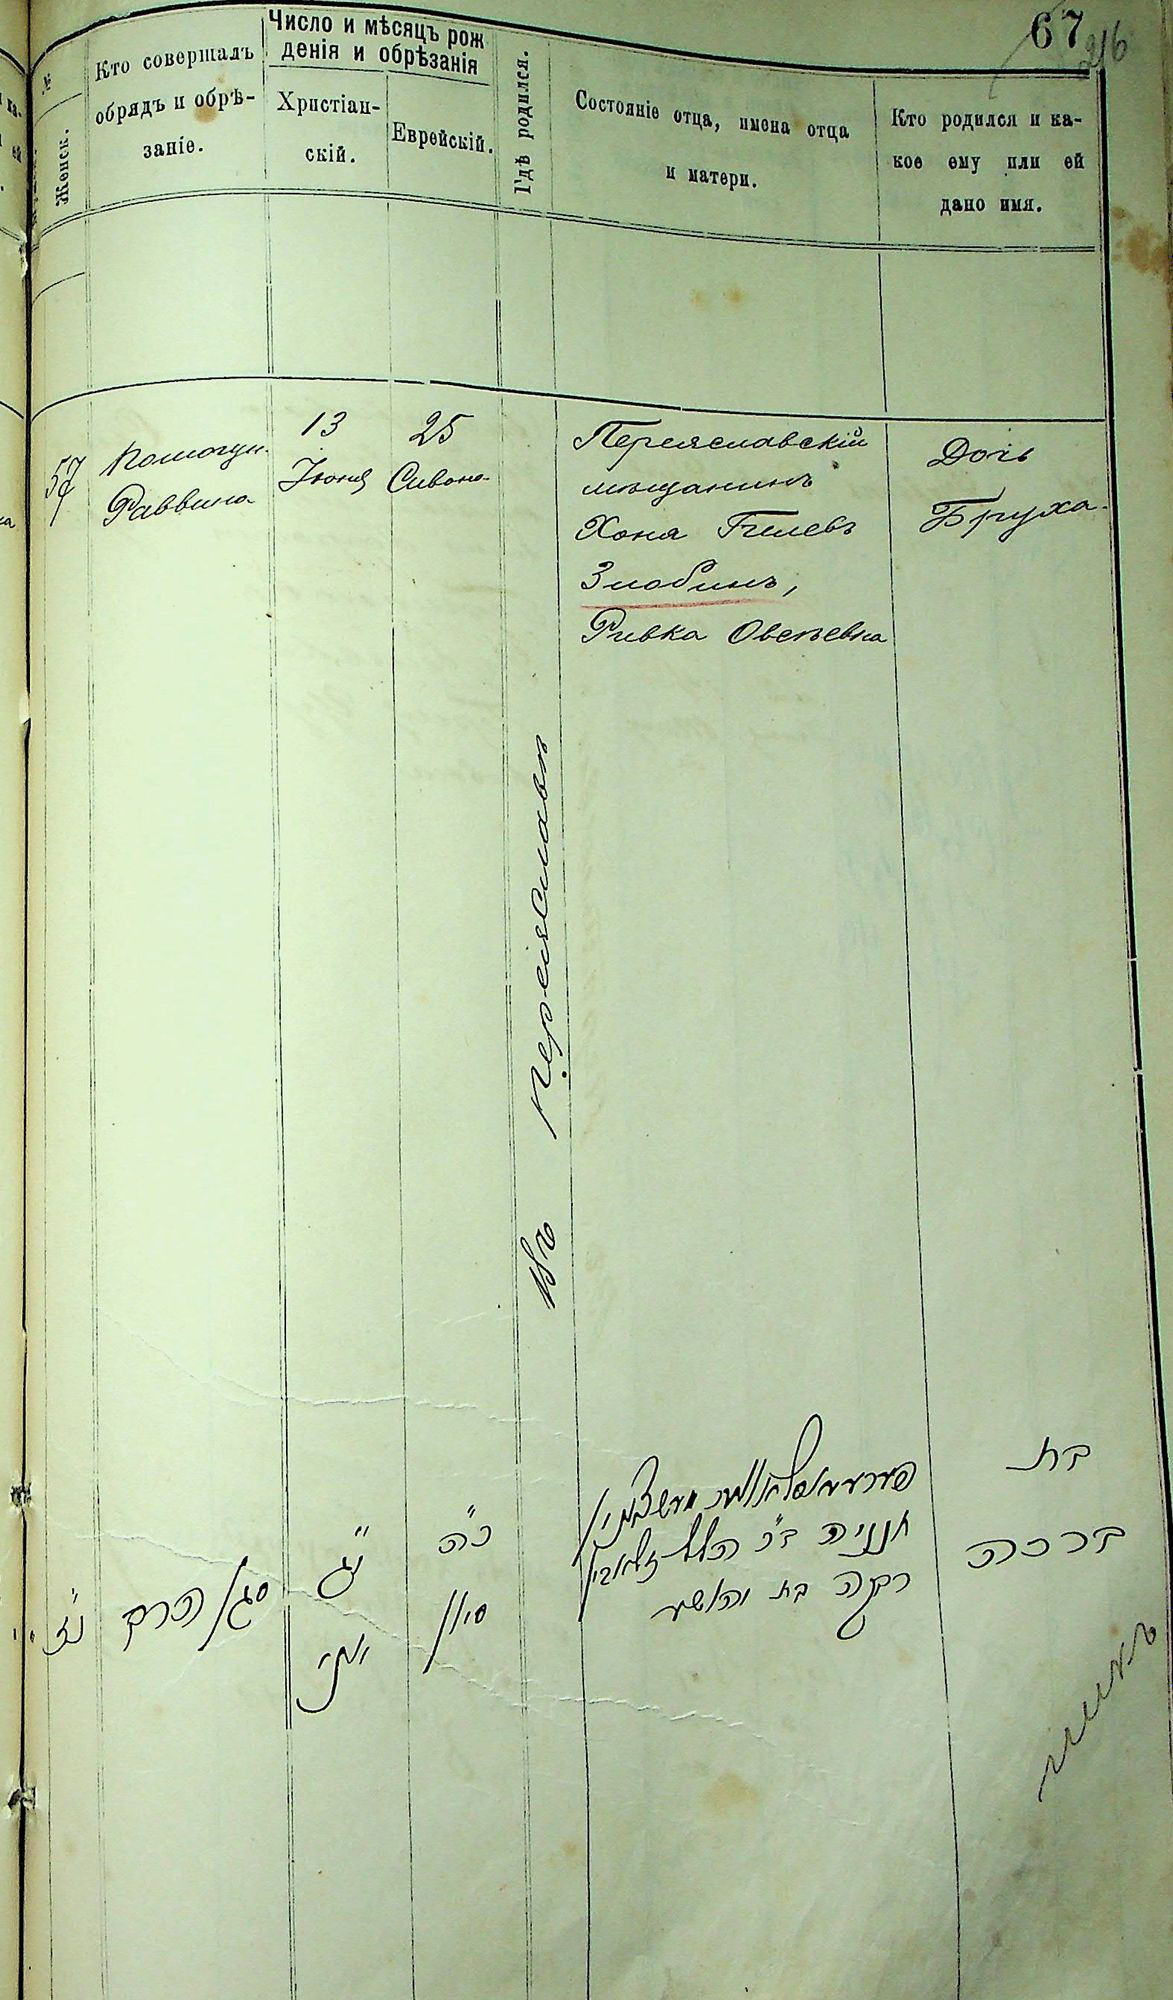 67
216
№
Женск.
Кто совершалъ
обрядъ и обрѣ-
заніе.
Число и мѣсяцъ рож
денія и обрѣзанія
Христіан-
скій.
Еврейскій.
Гдѣ родился.
Состояніе отца, имена отца
и матери.
Кто родился и ка-
кое ему или ей
дано имя.
57
Помощн.
Раввина
13
Іюня
25
Сивона
Въ Переяславѣ
Переяславскій
мѣщанинъ
Хоня Гилевъ
Злобинъ,
Ривка Овсѣевна
Дочь
Бруха.
נ"ז
סגן הרב
י"ג
יוני
כ"ה
סיון
חנניה ב"ר הלל זלאבין
רבקה בת יהושע
בת
ברכה